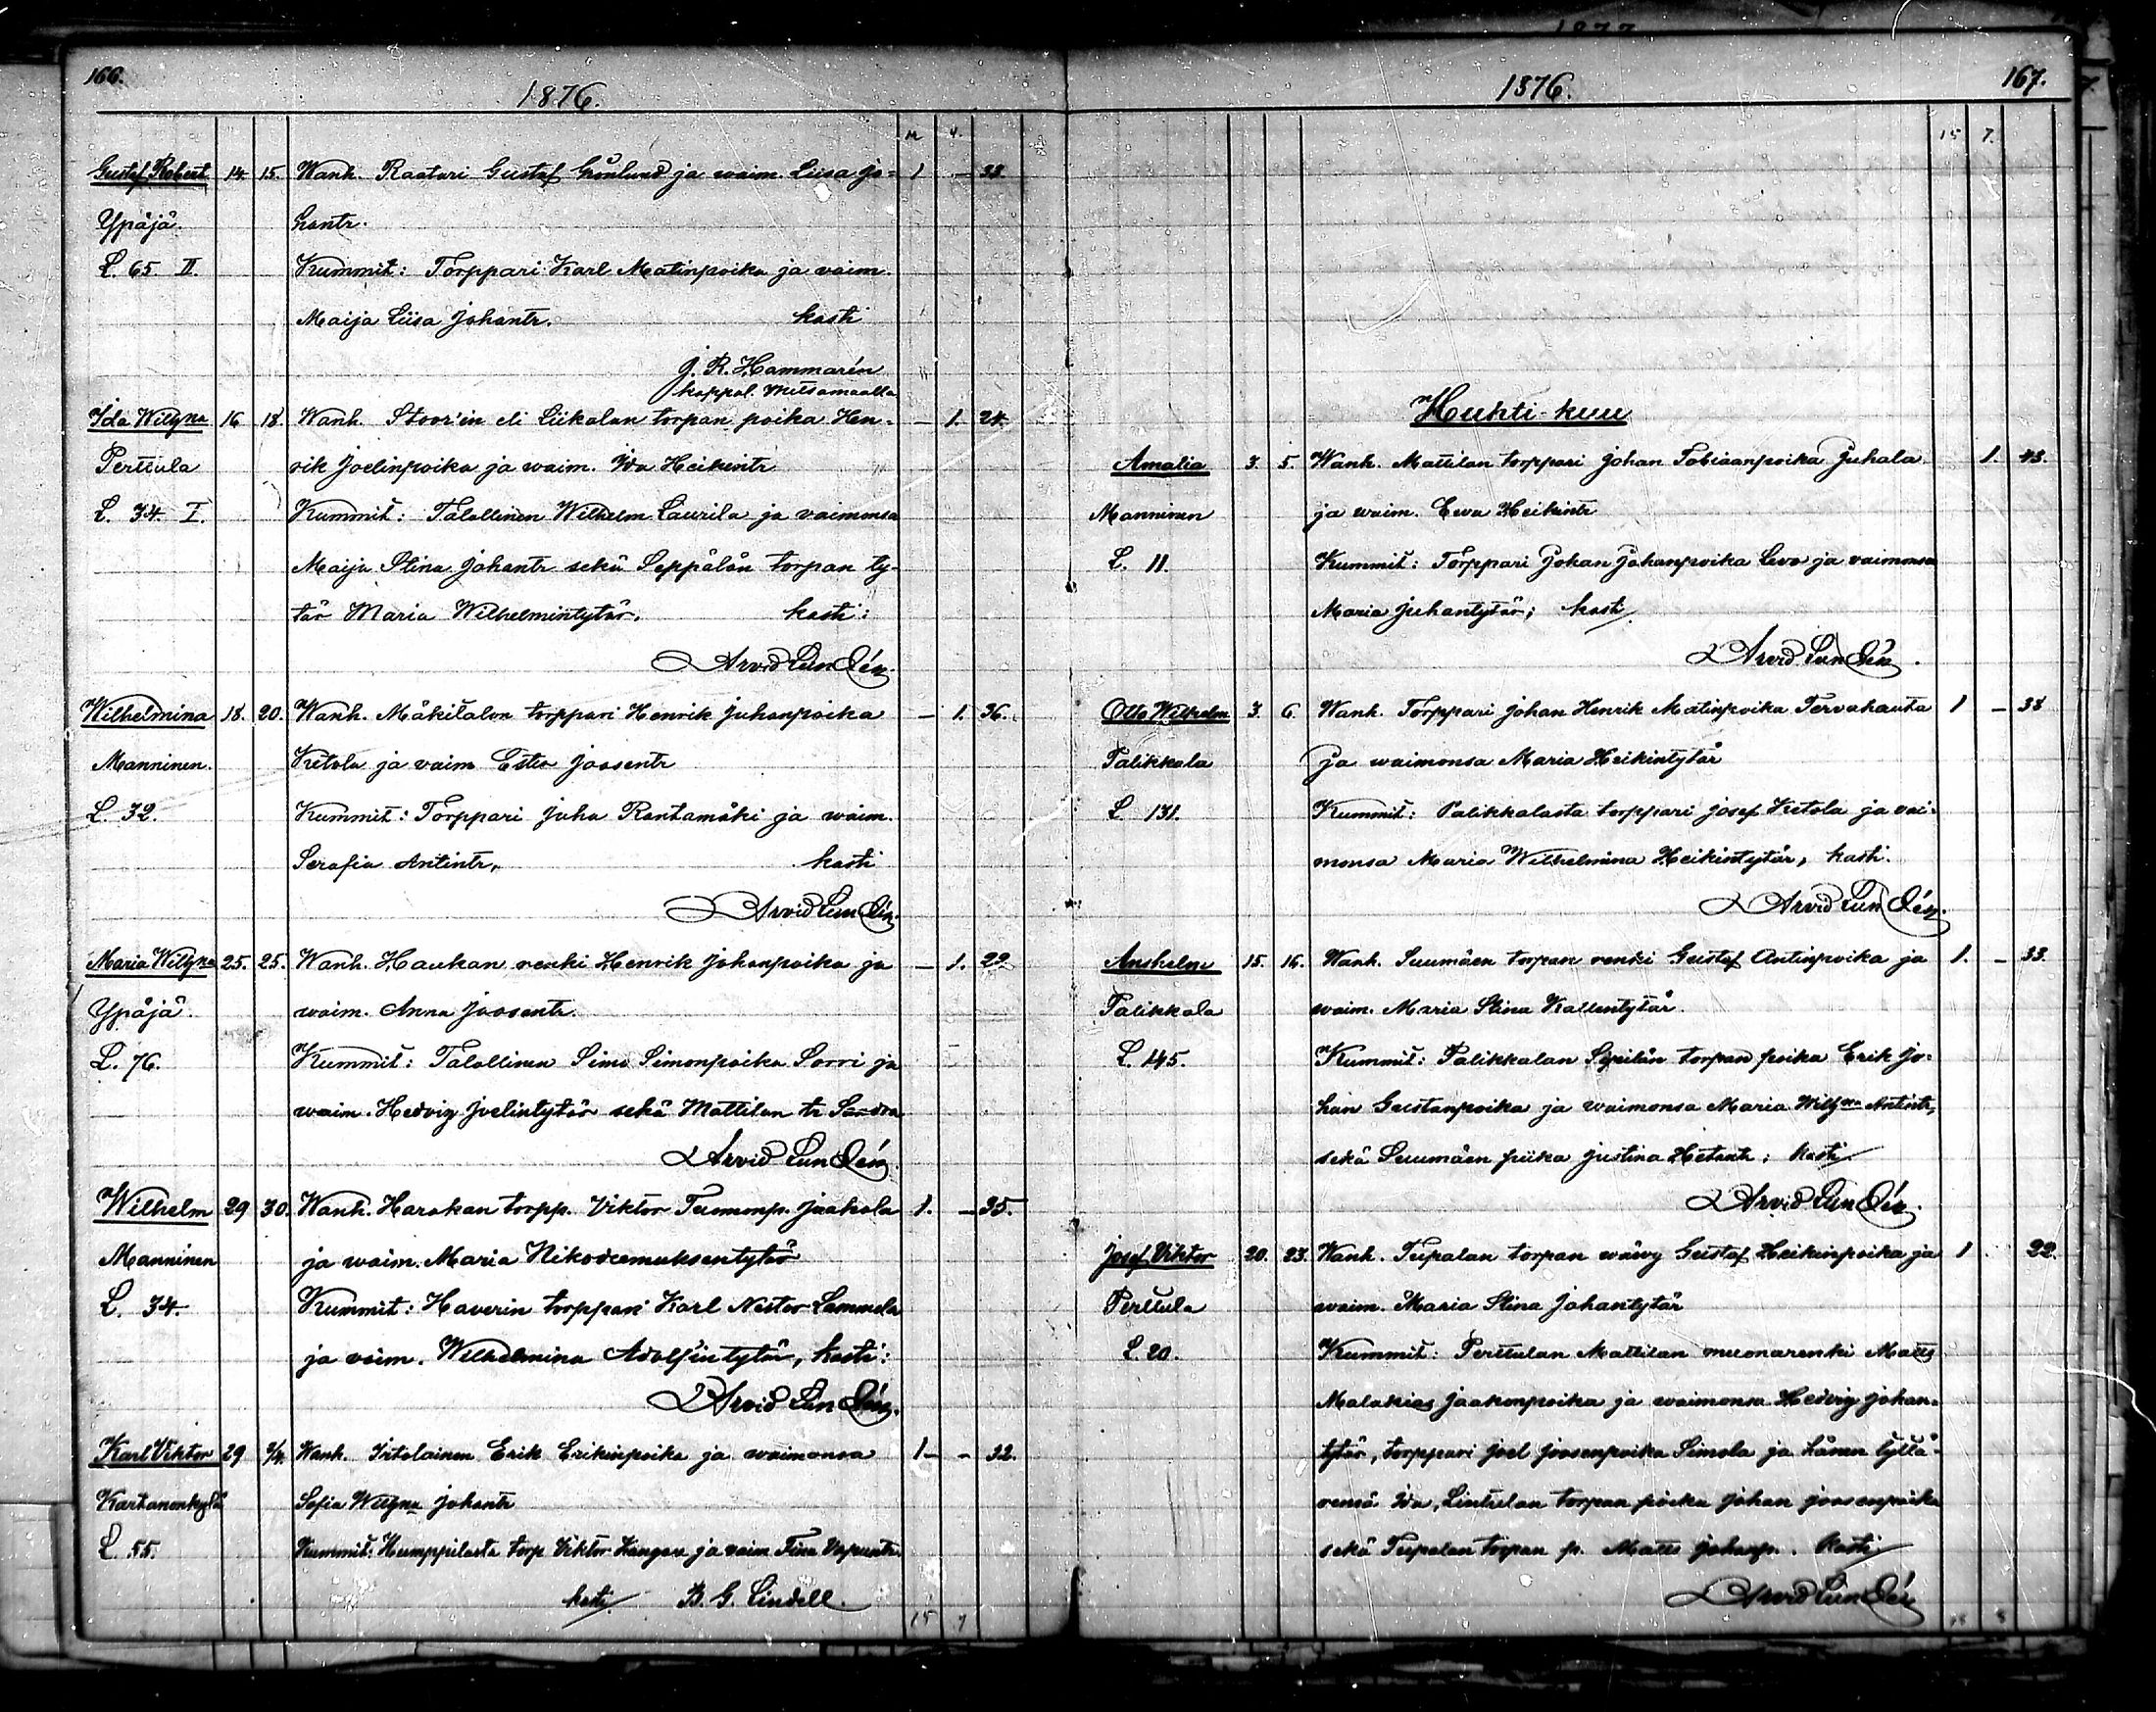 166.
1876.
12 4.
Gustaf Robert 14. 15. Wanh. Raatari Gustaf Grönlund ja waim. Liisa Jo= 1 - 38.
Ypäjä. hantr.
L. 65. II. Kummit: Torppari Karl Matinpoika ja vaim.
Maija Liisa Johantr. kasti
J. R. Hammarén
kappal. Metsämaalla
Ida Wilhna 16 18. Wanh. Stoor'in eli Liikalan torpan poika Hen= - 1. 24.
Perttula rik Joelinpoika ja waim. Ida Heikintr
L. 34. I. Kummit: Talollinen Wilhelm Laurila ja vaimonsa
Maija Stina Johantr sekä Seppälän torpan ty-
tär Maria Wilhelmintytär. kasti:
Arvid Lundén.
Wilhelmina 18. 20. Wanh. Mäkitalon torppari Henrik Juhanpoika - 1. 36.
Manninen. Ketola ja vaim Ester Joosentr
L. 32. Kummit: Torppari Juha Rantamäki ja waim.
Serafia Antintr, kasti
Arvid Lundén.
Maria Wilhna 25. 25. Wanh. Haukan renki Henrik Johanpoika ja - 1. 29.
Ypäjä. waim. Anna Joosentr.
L. 76. Kummit: Talollinen Simo Simonpoika Sorri ja
waim. Hedvig Joelintytär sekä Mattilan tr Sandra
Arvid Lundén.
Wilhelm 29 30. Wanh. Harakan torpp. Viktor Tuomonp. Jaakola 1. - 35.
Manninen ja waim. Maria Nikodeemuksentytär
L. 34. Kummit: Haverin torppari Karl Nestor Lammela
ja vaim. Wilhelmina Adolfintytär, kasti:
Arvid Lundén.
Karl Viktor 29 2/4. Wanh. Itstolainen Erik Erikinpoika ja waimonsa 1 - - 32.
Kartanonkylä Sofia Wilhna Johantr
L. 55. Kummit: Humppilasta torp Viktor Kangas ja vaim Fina Vapuntr.
kasti B. G. Lindell.
15 7
1876.
167.
15 7.
Huhti-kuu
Amalia 3. 5. Wanh. Mattilan torppari Johan Tobiaanpoika Juhala. 1. 43.
Manninen ja waim. Ewa Heikintr
L. 11. Kummit: Torppari Johan Johanpoika Levo ja vaimonsa
Maria Juhantytär; kasti
Arvid Lundén.
Otto Wilhelm 3. 6. Wanh. Torppari Johan Henrik Matinpoika Tervahauta 1 - 38
Palikkala ja waimonsa Maria Heikintytär
L. 131. Kummit: Palikkalasta torppari Josef Ketola ja vai-
monsa Maria Wilhelmina Heikintytär, kasti.
Arvid Lundén.
Anshelm 15. 16. Wanh. Suumäen torpan renki Gustaf Antinpoika ja 1. - 33.
Palikkala waim. Maria Stina Kallentytär.
L. 145. Kummit: Palikkalan Sipilän torpan poika Erik Jo-
han Gustanpoika ja waimonsa Maria Wilhna Antintr,
sekä Suumäen piika Justina Hetantr; kasti
Arvid Lundén.
Josef Viktor 20. 23. Wanh. Tupalan torpan wäwy Gustaf Heikinpoika ja 1 22.
Perttula waim. Maria Stina Johantytär
L. 20. Kummit: Perttulan Mattilan muonarenki Matts
Malakias Jaakonpoika ja waimonsa Hedvig Johan-
tytär, torppari Joel Joosenpoika Simola ja hänen tyttä-
rensä Ida, Lintulan torpan poika Johan Joosenpoika
sekä Tupalan torpan p. Matts Johanp. Kasti
Arvid Lundén
18 8